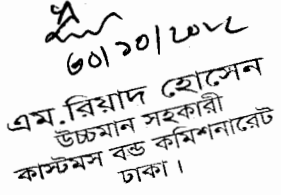 ৩০/১০/২০১৮
এম. রিয়াদ হোসেন
উচ্চমান সহকারী
কাস্টমস বন্ড কমিশনারেট
ঢাকা।